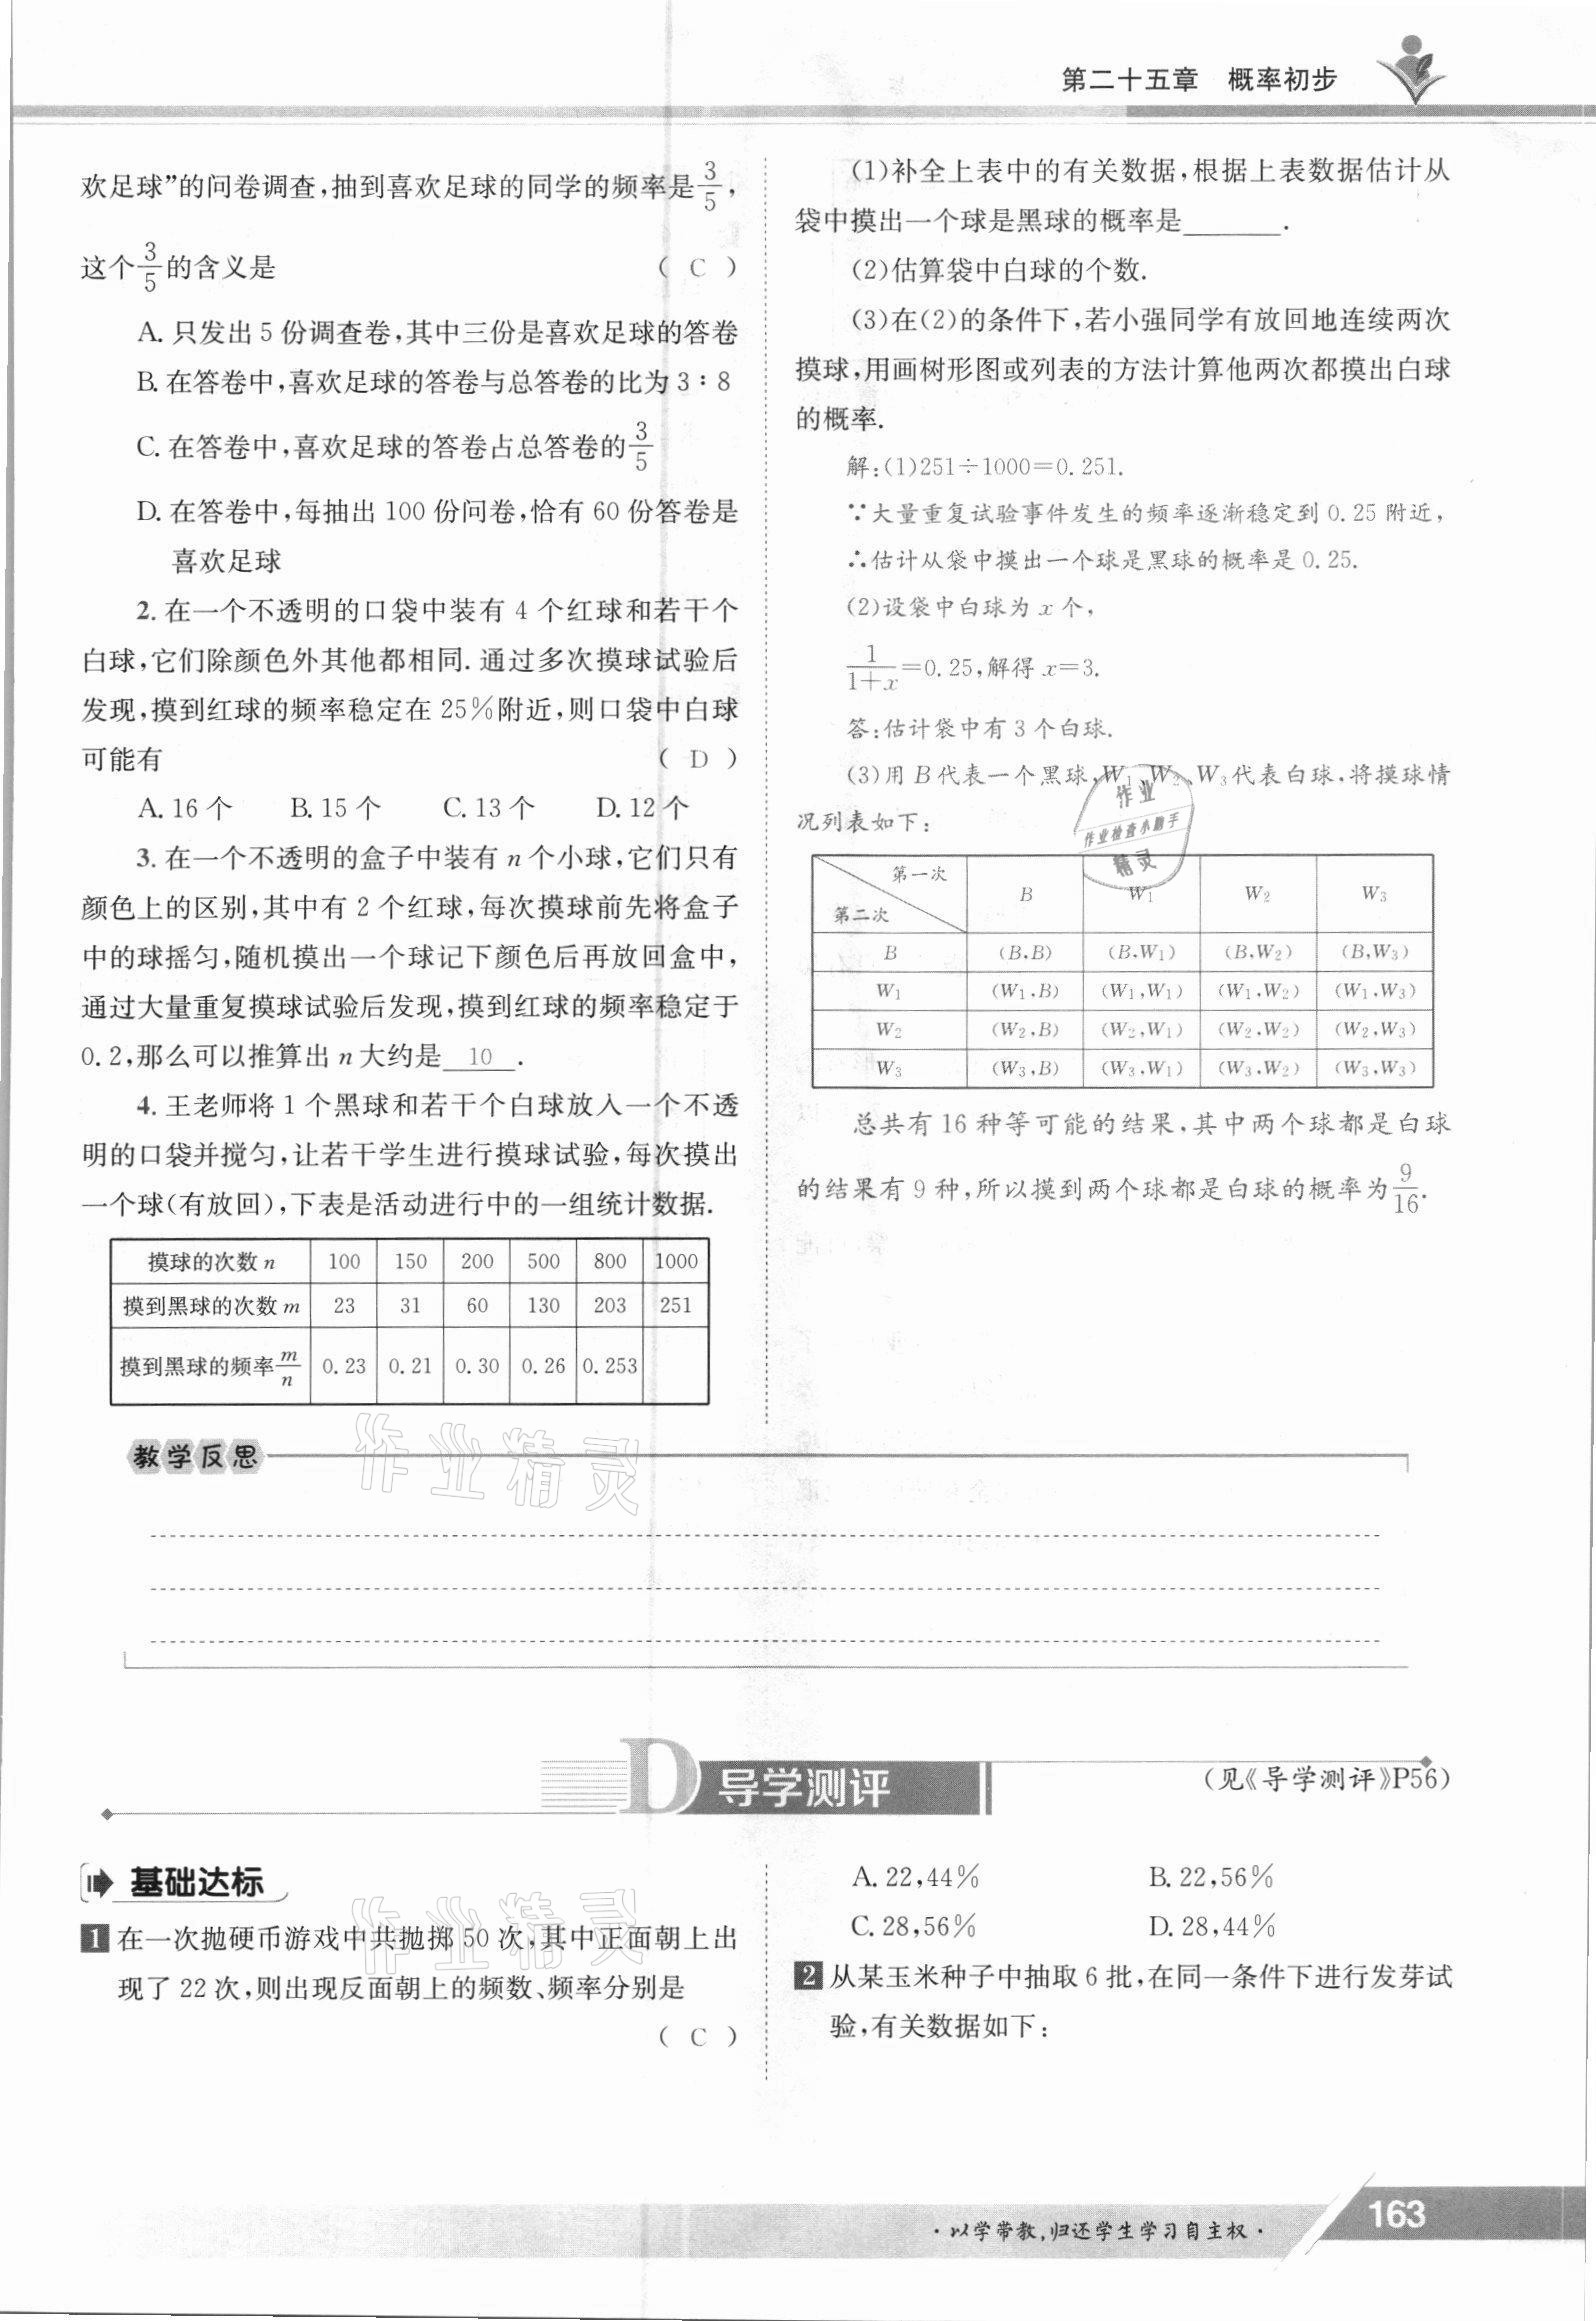 第二十五章 概率初步
欢足球”的问卷调查,抽到喜欢足球的同学的频率是3/5,
这个3/5的含义是 ( C )
A. 只发出 5 份调查卷,其中三份是喜欢足球的答卷
B. 在答卷中,喜欢足球的答卷与总答卷的比为 3∶8
C. 在答卷中,喜欢足球的答卷占总答卷的3/5
D. 在答卷中,每抽出 100 份问卷,恰有 60 份答卷是
喜欢足球
2. 在一个不透明的口袋中装有 4 个红球和若干个
白球,它们除颜色外其他都相同. 通过多次摸球试验后
发现,摸到红球的频率稳定在 25%附近,则口袋中白球
可能有 ( D )
A. 16 个 B. 15 个 C. 13 个 D. 12 个
3. 在一个不透明的盒子中装有 n 个小球,它们只有
颜色上的区别,其中有 2 个红球,每次摸球前先将盒子
中的球摇匀,随机摸出一个球记下颜色后再放回盒中,
通过大量重复摸球试验后发现,摸到红球的频率稳定于
0.2,那么可以推算出 n 大约是 10 .
4. 王老师将 1 个黑球和若干个白球放入一个不透
明的口袋并搅匀,让若干学生进行摸球试验,每次摸出
一个球(有放回),下表是活动进行中的一组统计数据.
摸球的次数 n 100 150 200 500 800 1000
摸到黑球的次数 m 23 31 60 130 203 251
摸到黑球的频率m/n 0.23 0.21 0.30 0.26 0.253
(1)补全上表中的有关数据,根据上表数据估计从
袋中摸出一个球是黑球的概率是______.
(2)估算袋中白球的个数.
(3)在(2)的条件下,若小强同学有放回地连续两次
摸球,用画树形图或列表的方法计算他两次都摸出白球
的概率.
解:(1)251÷1000=0.251.
∵大量重复试验事件发生的频率逐渐稳定到 0.25 附近,
∴估计从袋中摸出一个球是黑球的概率是 0.25.
(2)设袋中白球为 x 个,
1/(1+x)=0.25,解得 x=3.
答:估计袋中有 3 个白球.
(3)用 B 代表一个黑球,W₁、W₂、W₃代表白球,将摸球情
况列表如下:
作业
作业检查小助手
精灵
第一次
第二次 B W₁ W₂ W₃
B (B,B) (B,W₁) (B,W₂) (B,W₃)
W₁ (W₁,B) (W₁,W₁) (W₁,W₂) (W₁,W₃)
W₂ (W₂,B) (W₂,W₁) (W₂,W₂) (W₂,W₃)
W₃ (W₃,B) (W₃,W₁) (W₃,W₂) (W₃,W₃)
总共有 16 种等可能的结果,其中两个球都是白球
的结果有 9 种,所以摸到两个球都是白球的概率为9/16.
教学反思
作业精灵
D 导学测评
(见《导学测评》P56)
基础达标
作业精灵
1 在一次抛硬币游戏中共抛掷 50 次,其中正面朝上出
现了 22 次,则出现反面朝上的频数、频率分别是
( C )
A. 22,44% B. 22,56%
C. 28,56% D. 28,44%
2 从某玉米种子中抽取 6 批,在同一条件下进行发芽试
验,有关数据如下:
·以学带教,归还学生学习自主权·
163